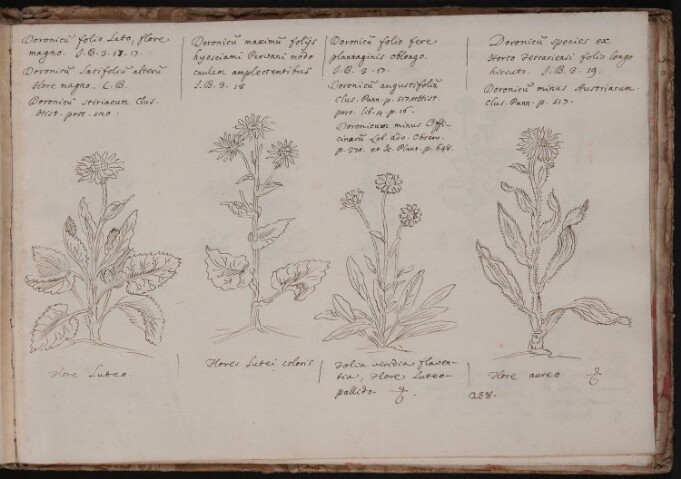 Doronicū folio Lato, flore
magno. J.B. 3. 17.
Doronicū Latifoliū alterū
flore magno. C.B.
Doronicū stiriacum Clus.
Hist. port.
Doronicū maximū folijs
hyosciami Peruani modo
caulem amplectentibus
J.B. 3. 18
Doronicū folio fere
plantaginis oblongo.
J.B. 3. 17.
Doronicū angustifoliū
Clus. Pann. p. 517. et Hist.
port. lib. 4. p. 16.
Doronicum minus Offi-
cinarū Lob. adv. Observ.
p. 370. et Ic. Plant. p. 648.
Doronicū species ex
Horto folio longo
hirsuto. J.B. 3. 19.
Doronicū minus Austriacum
Clus. Pann. p. 517.
flore Luteo.
flores Lutei coloris
folia viridia flaven-
tia, flore Luteo-
pallido
flore aureo
258.